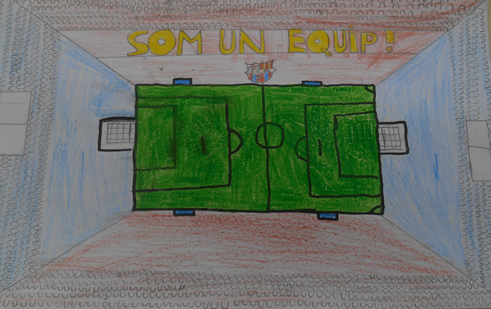 SOM UN EQUIP!